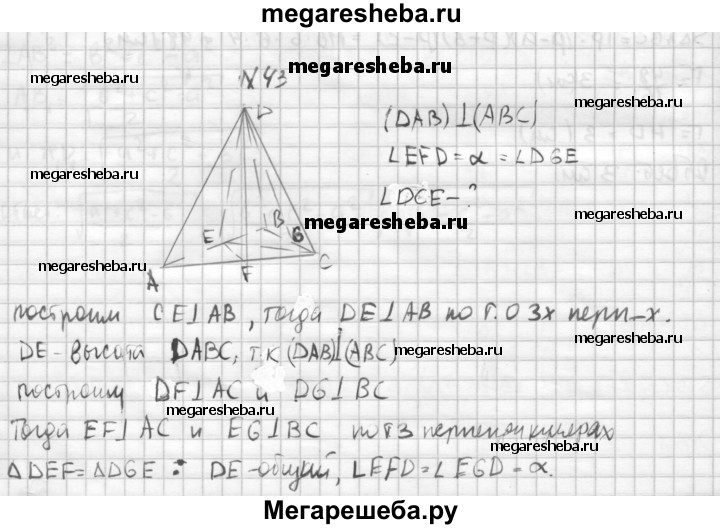 megaresheba.ru
N 43
megaresheba.ru
megaresheba.ru
megaresheba.ru
D
(DAB)⊥(ABC)
∠EFD=α=∠DGE
∠DCE-?
megaresheba.ru
megaresheba.ru
megaresheba.ru
E B G
megaresheba.ru
A F C
построим CE⊥AB, тогда DE⊥AB по т. о 3х перп-х.
DE-высота DABC, т.к (DAB)⊥(ABC)
megaresheba.ru
megaresheba.ru
построим DF⊥AC и DG⊥BC
megaresheba.ru
Тогда EF⊥AC и EG⊥BC по т 3 перпендикулярах
megaresheba.ru
ΔDEF=ΔDGE : DE-общий, ∠EFD=∠EGD=α.
megaresheba.ru
Мегарешеба.ру